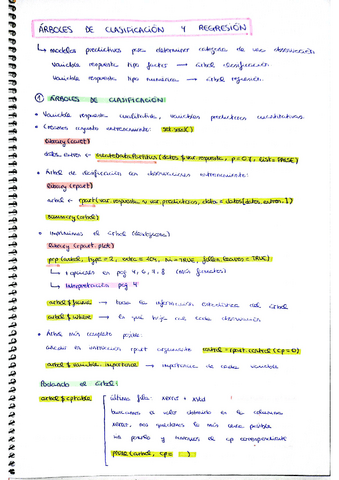 ÁRBOLES DE CLASIFICACIÓN Y REGRESIÓN
↳ modelos predictivos para determinar categoría de una observación
Variable respuesta tipo factor → árbol clasificación
Variable respuesta tipo numérica → árbol regresión
① ÁRBOLES DE CLASIFICACIÓN:
• Variable respuesta cualitativa, variables predictoras cuantitativas.
• Creamos conjunto entrenamiento: set.seed()
library(caret)
datos.entren ← createDataPartition(datos$var.respuesta, p=0.7, list=FALSE)
• Árbol de clasificación con observaciones entrenamiento:
library(rpart)
arbol ← rpart(var.respuesta ~ var.predictoras, data = datos[datos.entren,])
summary(arbol)
• Imprimimos el árbol
library(rpart.plot)
prp(arbol, type=2, extra=104, ni=TRUE, fallen.leaves=TRUE)
↳ explicados en pág 4, 6, 7, 8
↳ Interpretación pág 4
arbol$frame → toda la información estadística del árbol
arbol$where → en qué hoja cae cada observación
• Árbol más complejo posible:
añadir en entonces rpart argumento control=rpart.control(cp=0)
arbol$variable.importance → importancia de cada variable
Podando el árbol:
arbol$cptable
última fila: xerror + xstd
buscamos el valor obtenido en la columna
xerror, nos quedamos lo más cerca posible
y el cp correspondiente
prune(arbol, cp= )